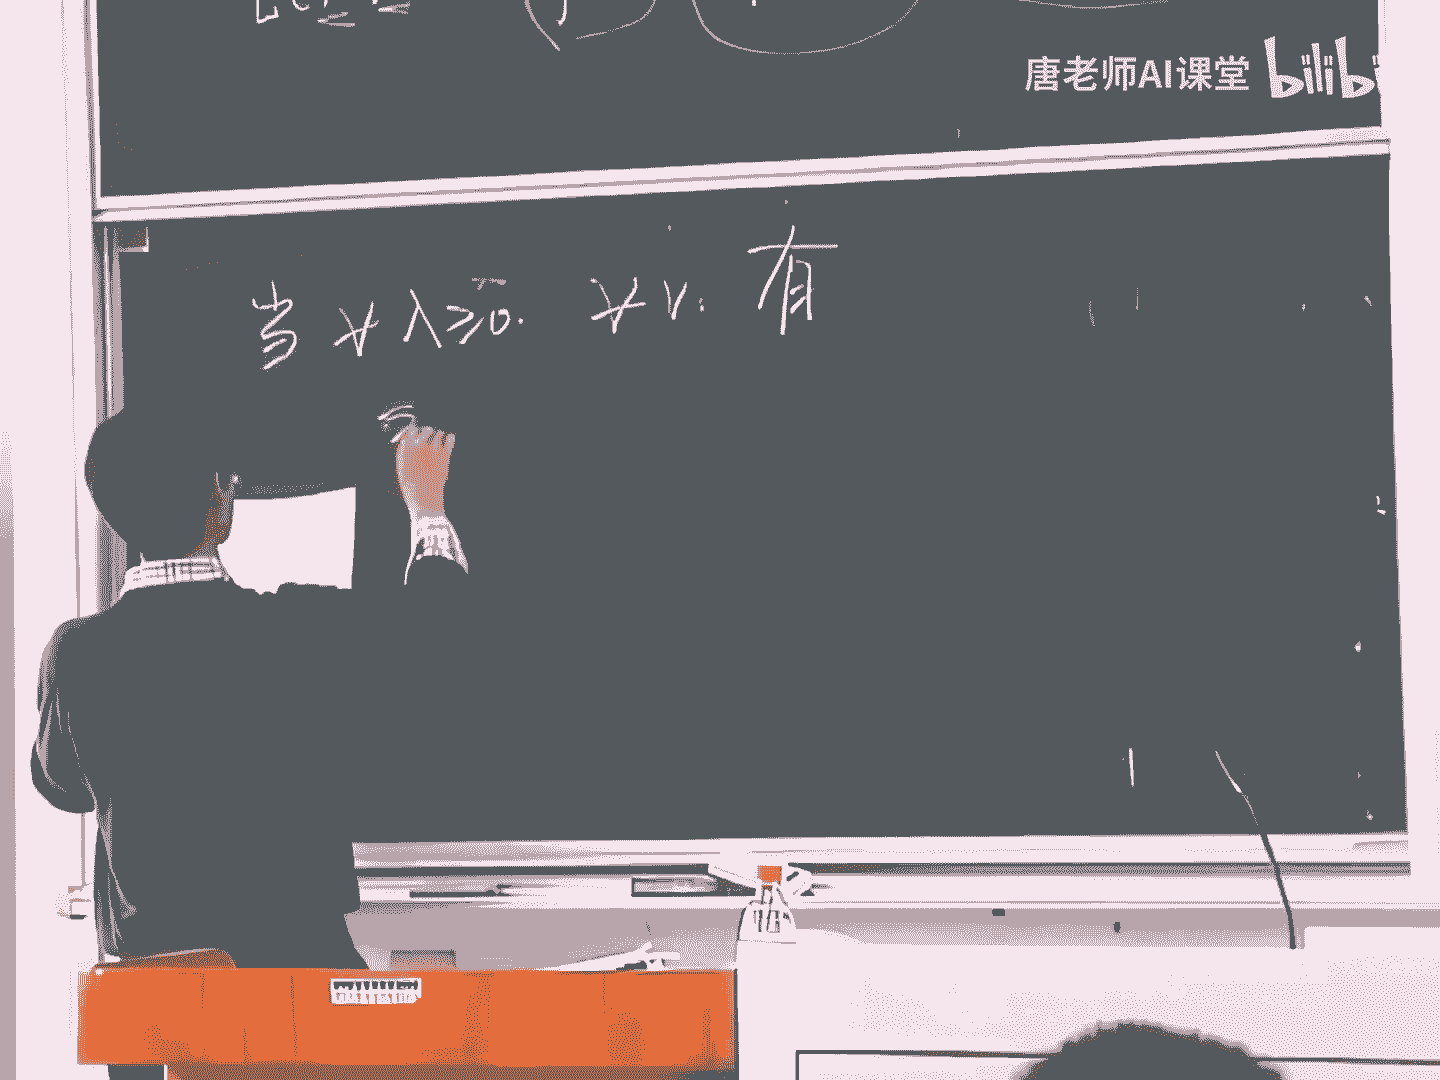 唐老师AI课堂 bilibi
当 ∀ λ≥0. ∀ ν. 有